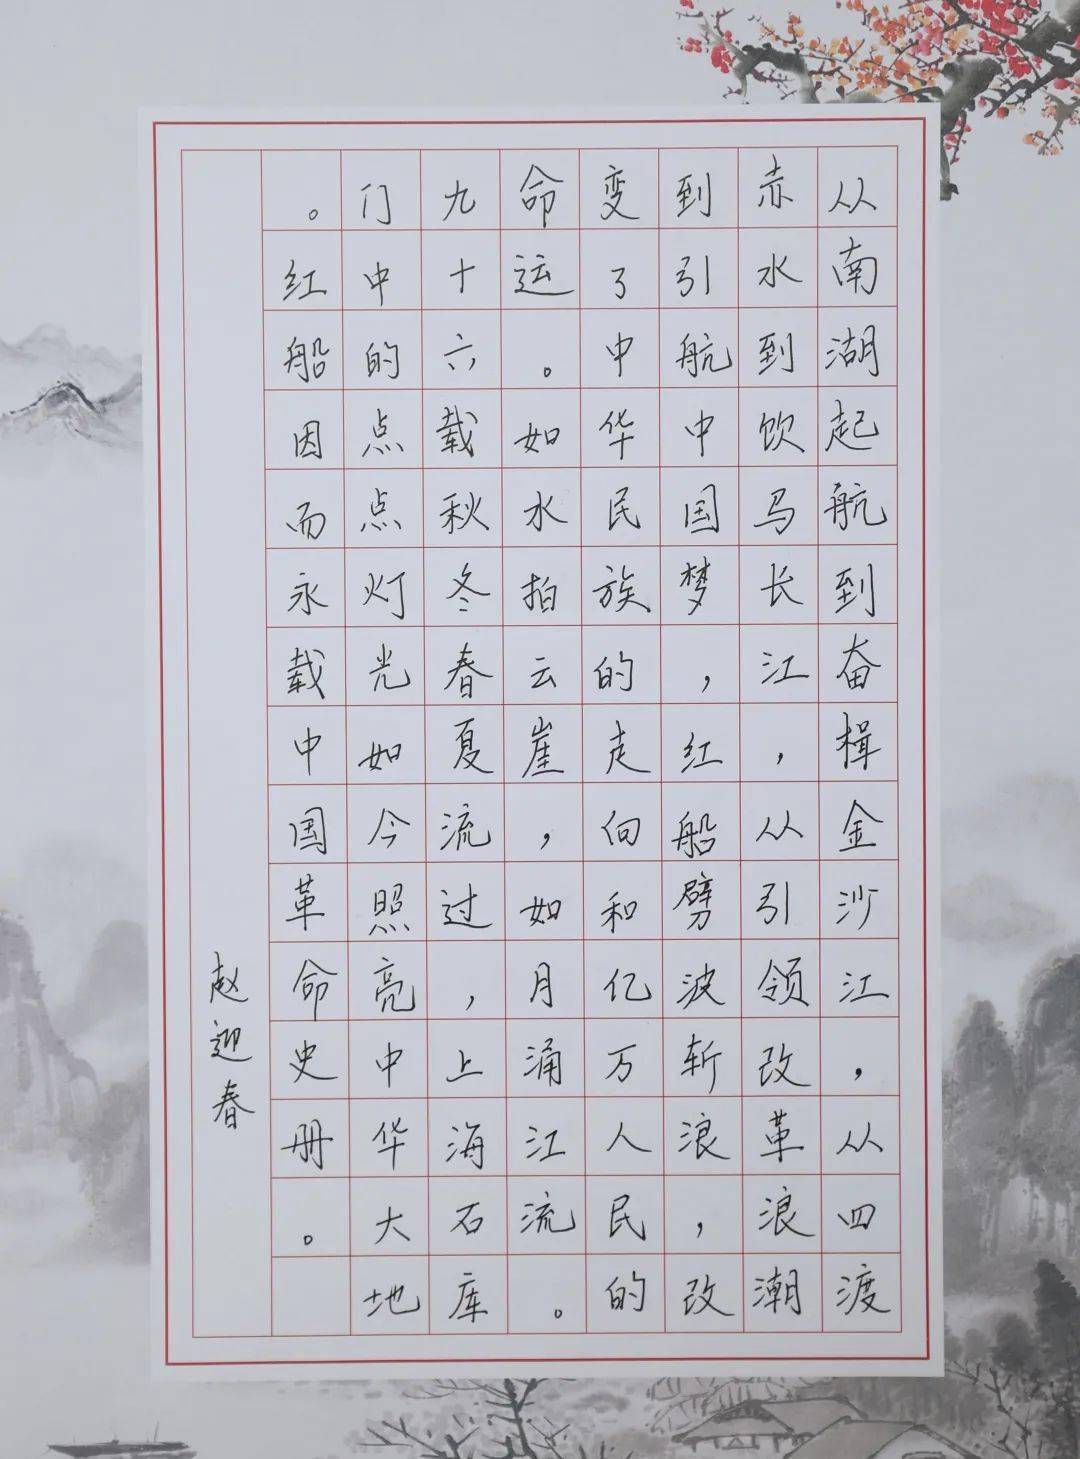 从南湖起航到奋楫金沙江，从四渡
赤水到饮马长江，从引领改革浪潮
到引航中国梦，红船劈波斩浪，改
变了中华民族的走向和亿万人民的
命运。如水拍云崖，如月涌江流。
九十六载秋冬春夏流过，上海石库
门中的点点灯光如今照亮中华大地
。红船因而永载中国革命史册。
赵迎春